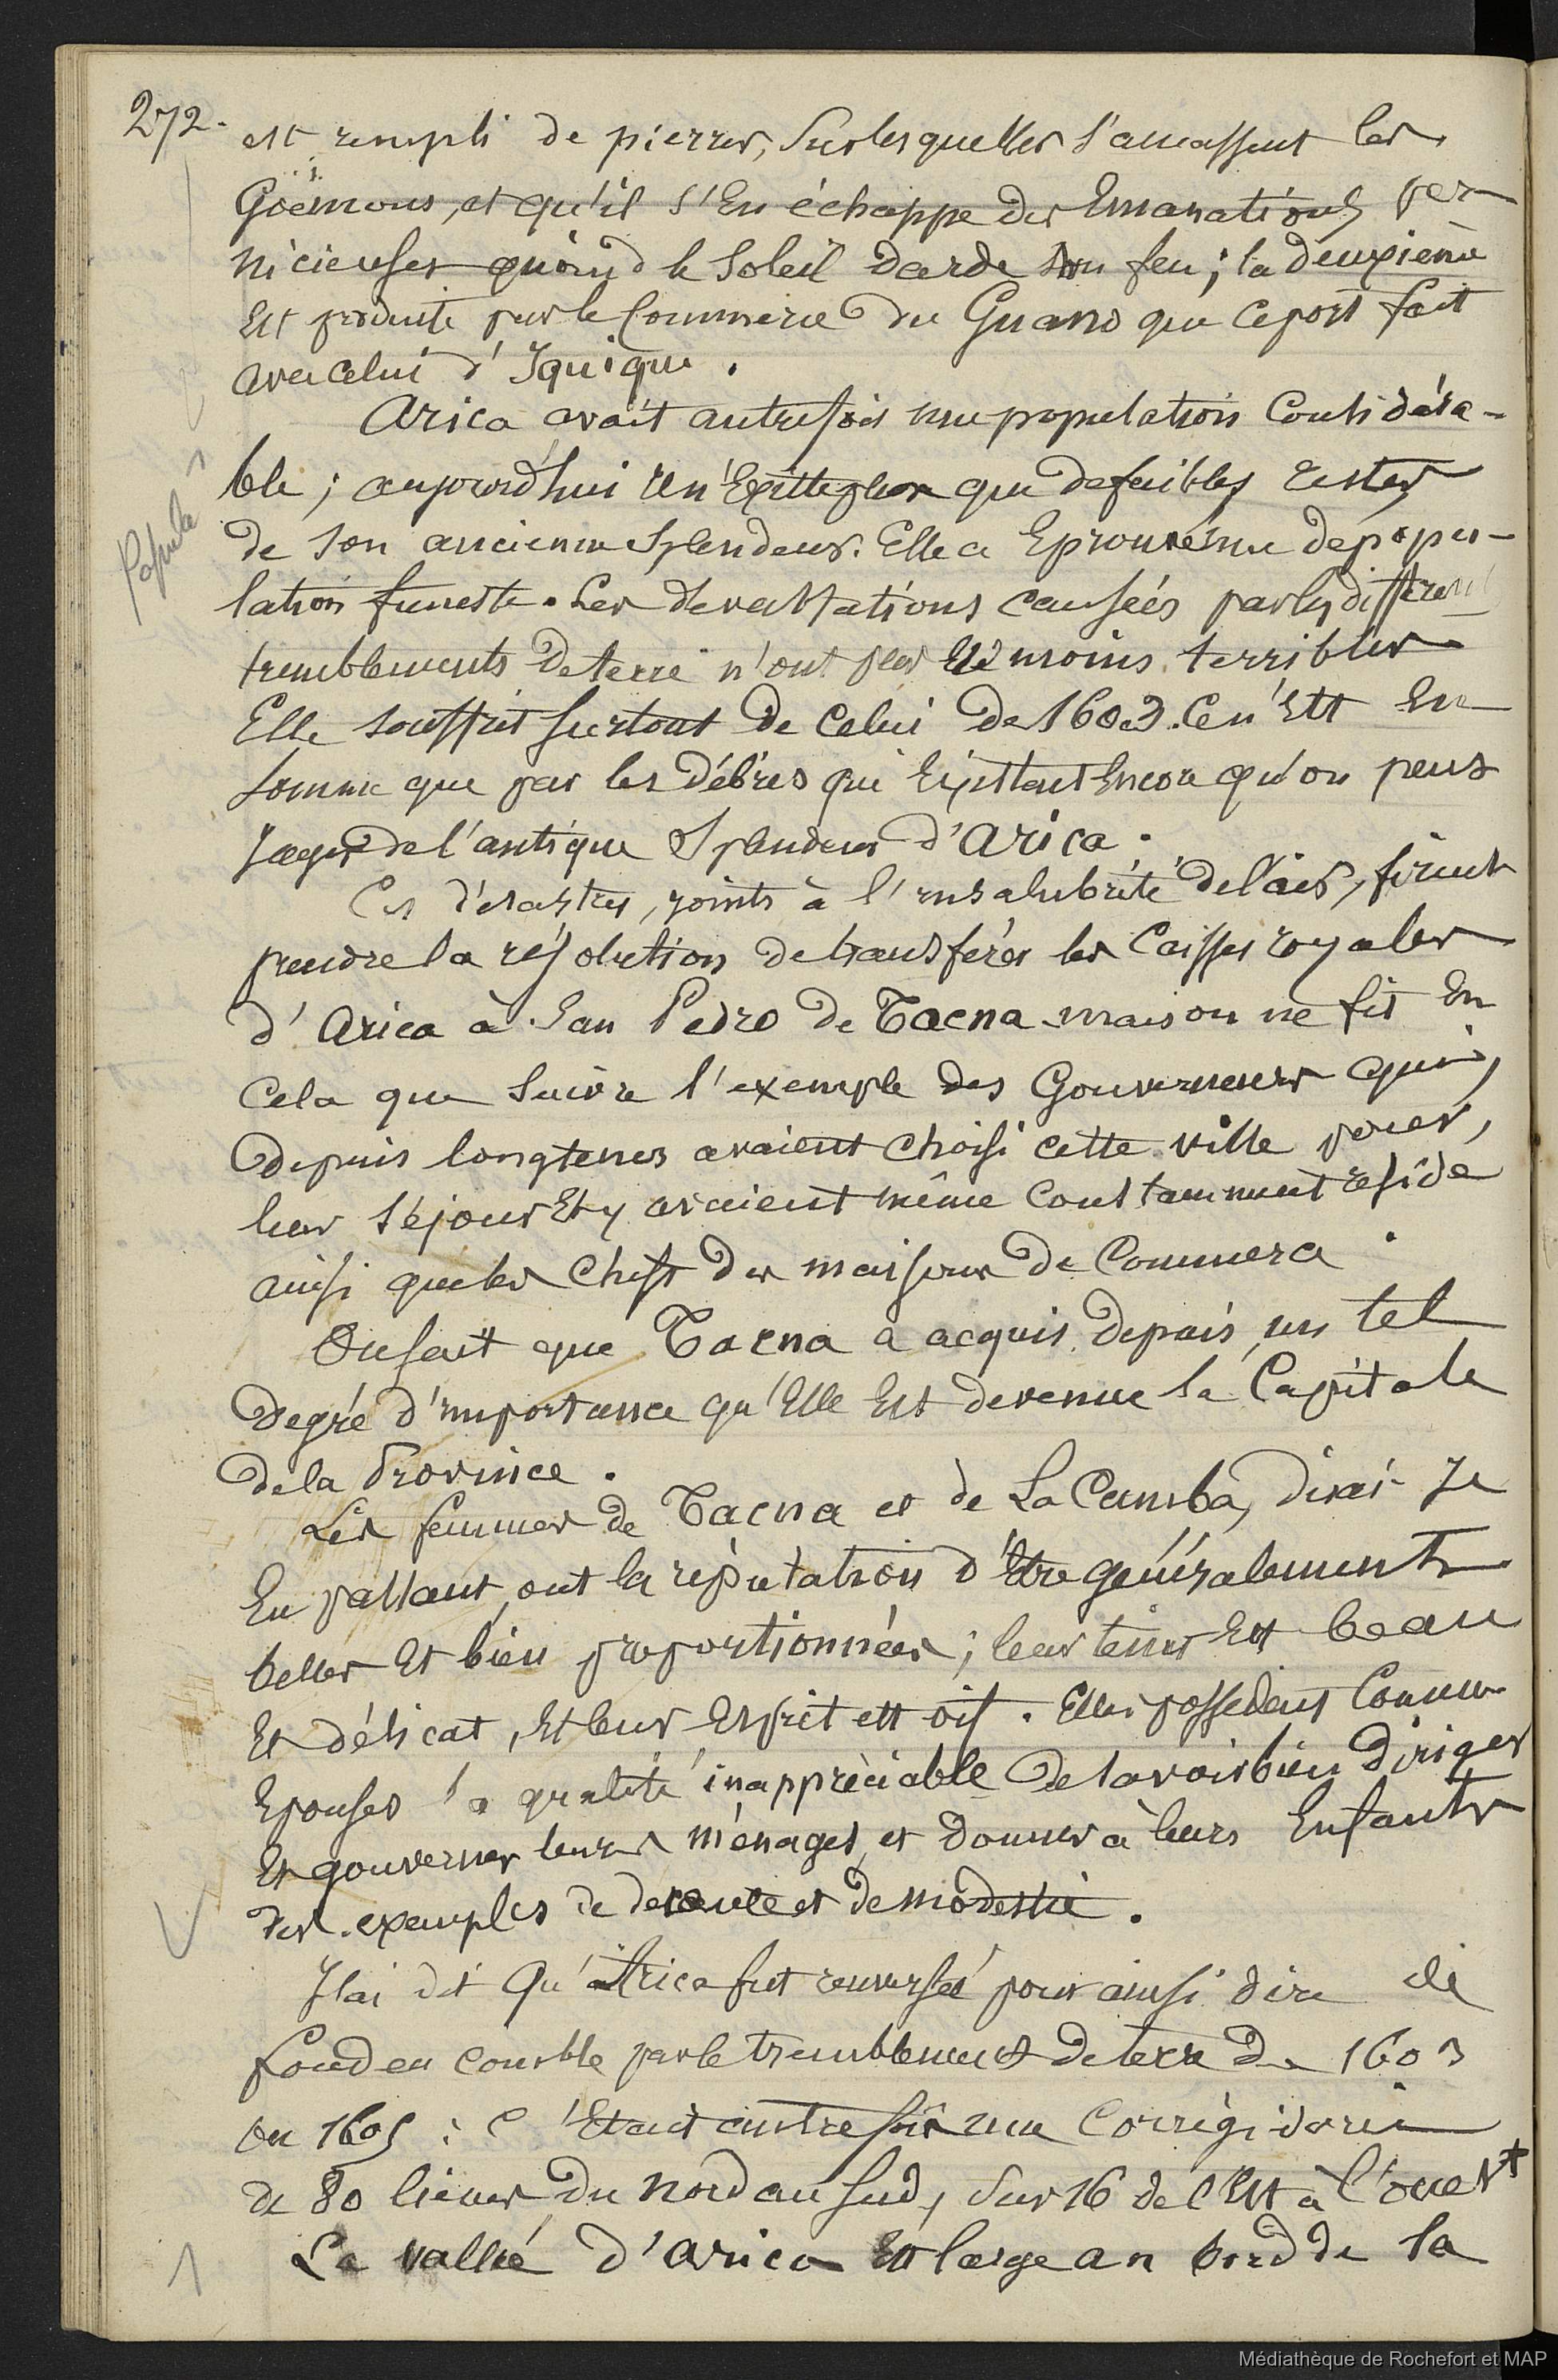 272.
est rempli de pierres, sur lesquelles s'amassent les
Goëmons, et qu'il s'En échappe des Emanations per
nicieuses quand le Soleil darde son feu; la deuxième
Est produite par le Commerce du Guano que ce port fait
avec celui d'Iquique.
Arica avait autrefois une population Considéra-
ble; aujourd'hui il n'Existe plus que de faibles restes
de son ancienne Splendeur. Elle a Eprouvé une dépopu-
lation funeste. Les devastations causées par les différents
tremblements de terre n'ont pas été moins terribles
Elle souffrit surtout de celui de 1603. Ce n'Est En
somme que par les débris qui Existent Encore qu'on peut
Juger de l'antique Splendeur d'Arica.
Ces désastres, joints à l'insalubrité de l'air, firent
prendre la résolution de transférer les Caisses royales
d'Arica à San Pedro de Tacna mais on ne fit En
Cela que Suivre l'exemple des Gouverneurs qui,
depuis longtems avaient choisi cette ville pour,
leur séjour Et y avaient même Constamment résidé
ainsi que les Chefs des maisons de Commerce.
On sait que Tacna a acquis depuis, un tel
degré d'importance qu'Elle Est devenue la Capitale
de la Province.
Les femmes de Tacna et de La Camba, dirai-Je
En passant, ont la réputation d'Etre généralement
belles Et bien proportionnées; leur teint Est beau
Et délicat, Et leur Esprit est vif. Elles possèdent Comme
Epouses la qualité inappréciable de savoir bien diriger
Et gouverner leurs ménages et donner à leurs Enfants
des exemples de decence et de modestie.
J'ai dit qu'Arica fut renversée pour ainsi dire de
fond en comble par le tremblement de terre de 1603
ou 1605: C'Etait autrefois une Corrégidorie
de 80 lieues du nord au sud, sur 16 de l'Est à l'ouest
La vallée d'Arica Est large au bord de la
Popula
1
Médiathèque de Rochefort et MAP